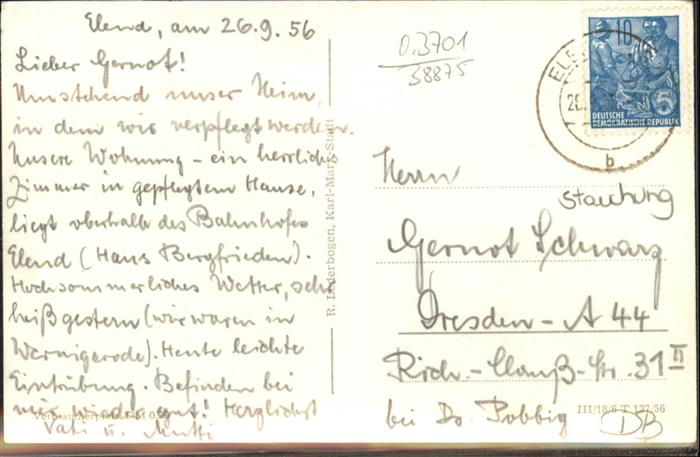 Elend, am 26.9.56
Lieber Gernot!
Umstehend unser Heim,
in dem wir verpflegt werden.
Unsere Wohnung – ein herrlich.
Zimmer in gepflegtem Hause,
liegt oberhalb des Bahnhofes
Elend (Haus Bergfrieden).
Hochsommerliches Wetter, sehr
heiß gestern (wir waren in
Wernigerode). Heute leichte
Eintrübung. Befinden bei
mir wieder gut! Herzlichst
Vati u. Mutti
R. Lederbogen, Karl-Marx-Stadt
0.3701
58875
10
5
DEUTSCHE
DEMOKRATISCHE REPUBLIK
b
Herrn
Gernot Schwarz
Dresden-A 44
Rich.-Clauß-Str. 31 II
bei Dr. Pobbig
III/18/6 T 137/56
DB